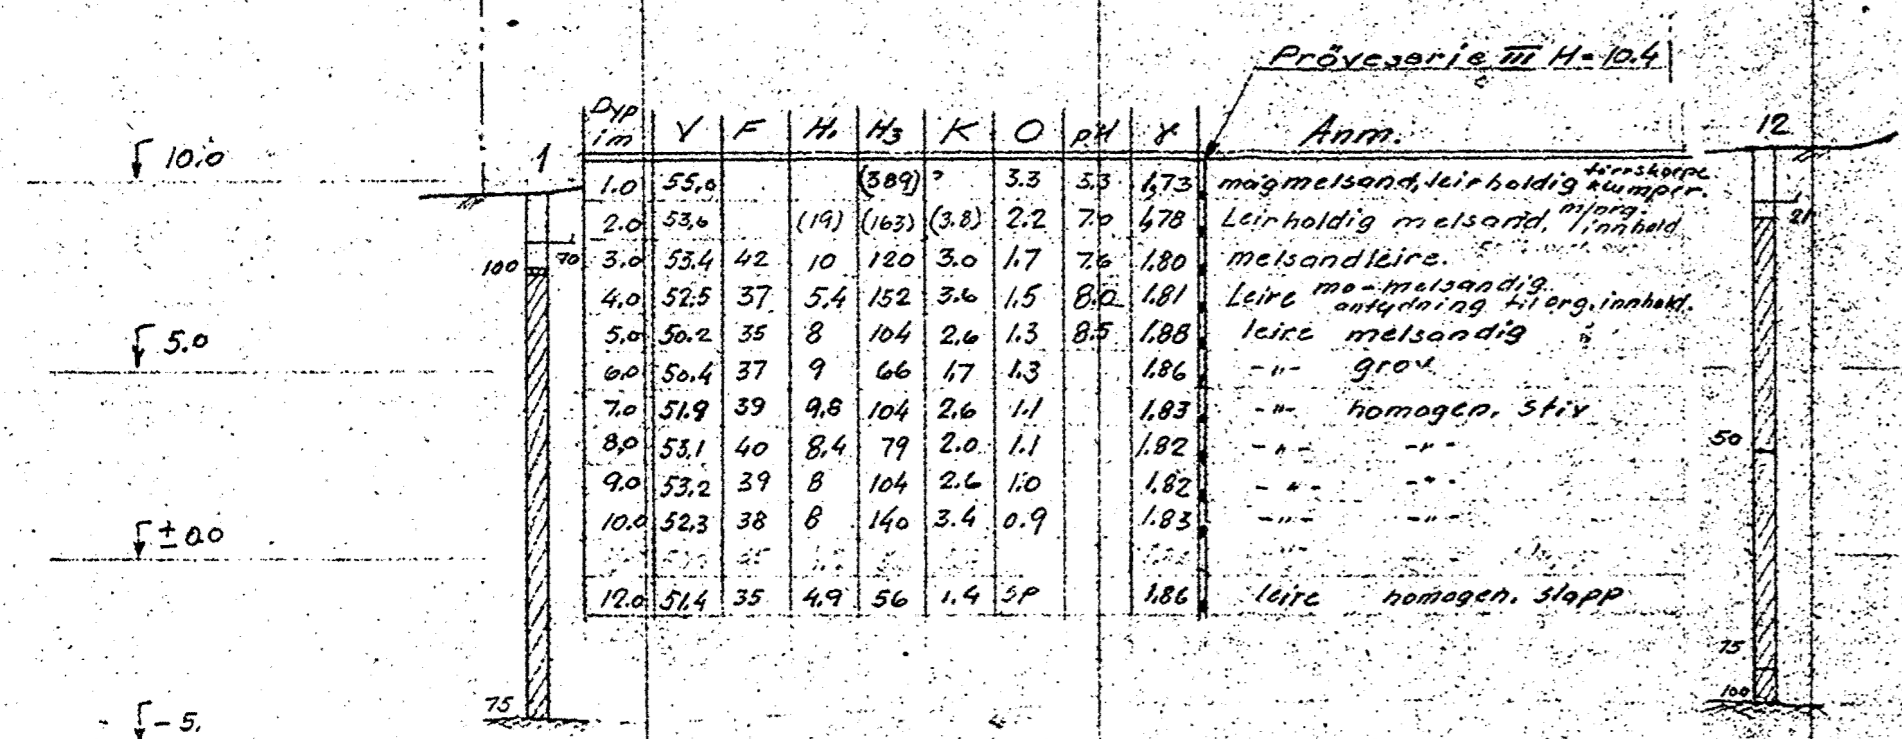 Pröveserie III H=10.4
Dyp im V F H1 H3 K O pH γ Anm.
1.0 55,0 (389) ? 3.3 5.3 1,73 mag melsand, leirholdig tørrskorpe klumper.
2.0 53,6 (19) (163) (3.8) 2.2 7.0 1,78 Leirholdig melsand, m/org. innhold
3.0 53.4 42 10 120 3.0 1.7 7.6 1.80 melsandleire.
4.0 52.5 37 5.4 152 3.6 1.5 8.0 1.81 Leire mo-melsandig antydning til org. innhold.
5.0 50.2 35 8 104 2.6 1.3 8.5 1.88 leire melsandig
6.0 50.4 37 9 66 1.7 1.3 1.86 -"- grov
7.0 51.9 39 9.8 104 2.6 1.1 1.83 -"- homogen, stiv
8.0 53.1 40 8.4 79 2.0 1.1 1.82 -"- -"-
9.0 53.2 39 8 104 2.6 1.0 1.82 -"- -"-
10.0 52.3 38 8 140 3.4 0.9 1.83 -"- -"-
12.0 51.4 35 4.9 56 1.4 SP 1.86 leire homogen, slapp
10.0
5.0
±0.0
-5.
1
100
70
75
12
21
50
75
100